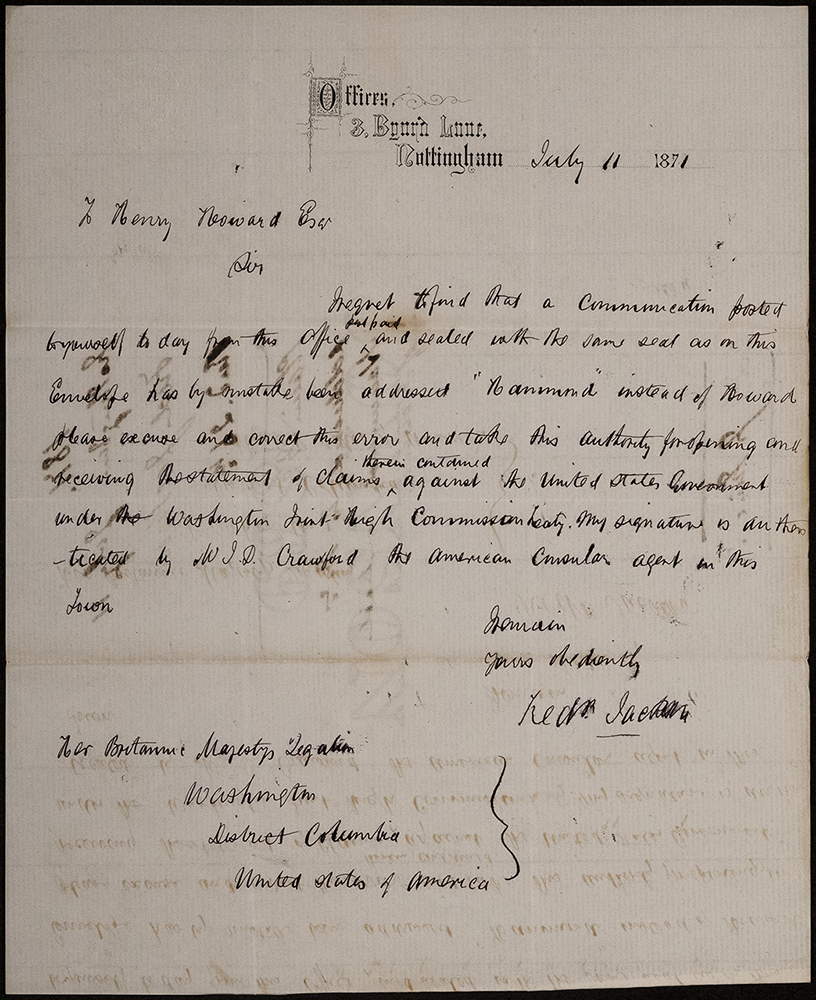 Offices,
3, Byard Lane,
Nottingham July 11 1871
To Henry Howard Esqr
Sir
I regret to find that a Communication posted
by myself to day from this Office and sealed with the same seal as on this
Envelope has by mistake been addressed "Hammond" instead of Howard
please excuse and correct this error and take this authority for opening and
receiving the statement of Claims therein contained against the United States Government
under the Washington Joint High Commission Treaty. My signature is authen
-ticated by Mr J.D. Crawford the American Consular agent in this
Town
I remain
Yours obediently
Fredk Jackson
Her Britannic Majestys Legation
Washington
District Columbia
United States of America